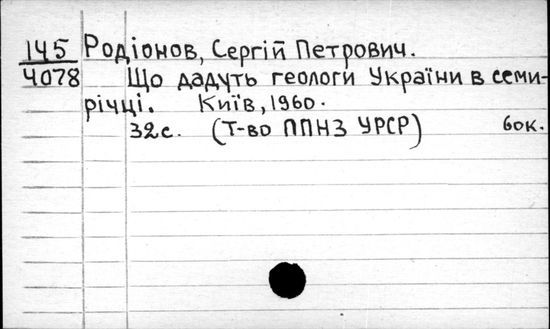 145 Родіонов, Сергій Петрович.
4078 Що дадуть геологи України в семи-
річці. Київ, 1960.
32с. (Т-во ППНЗ УРСР) 60к.